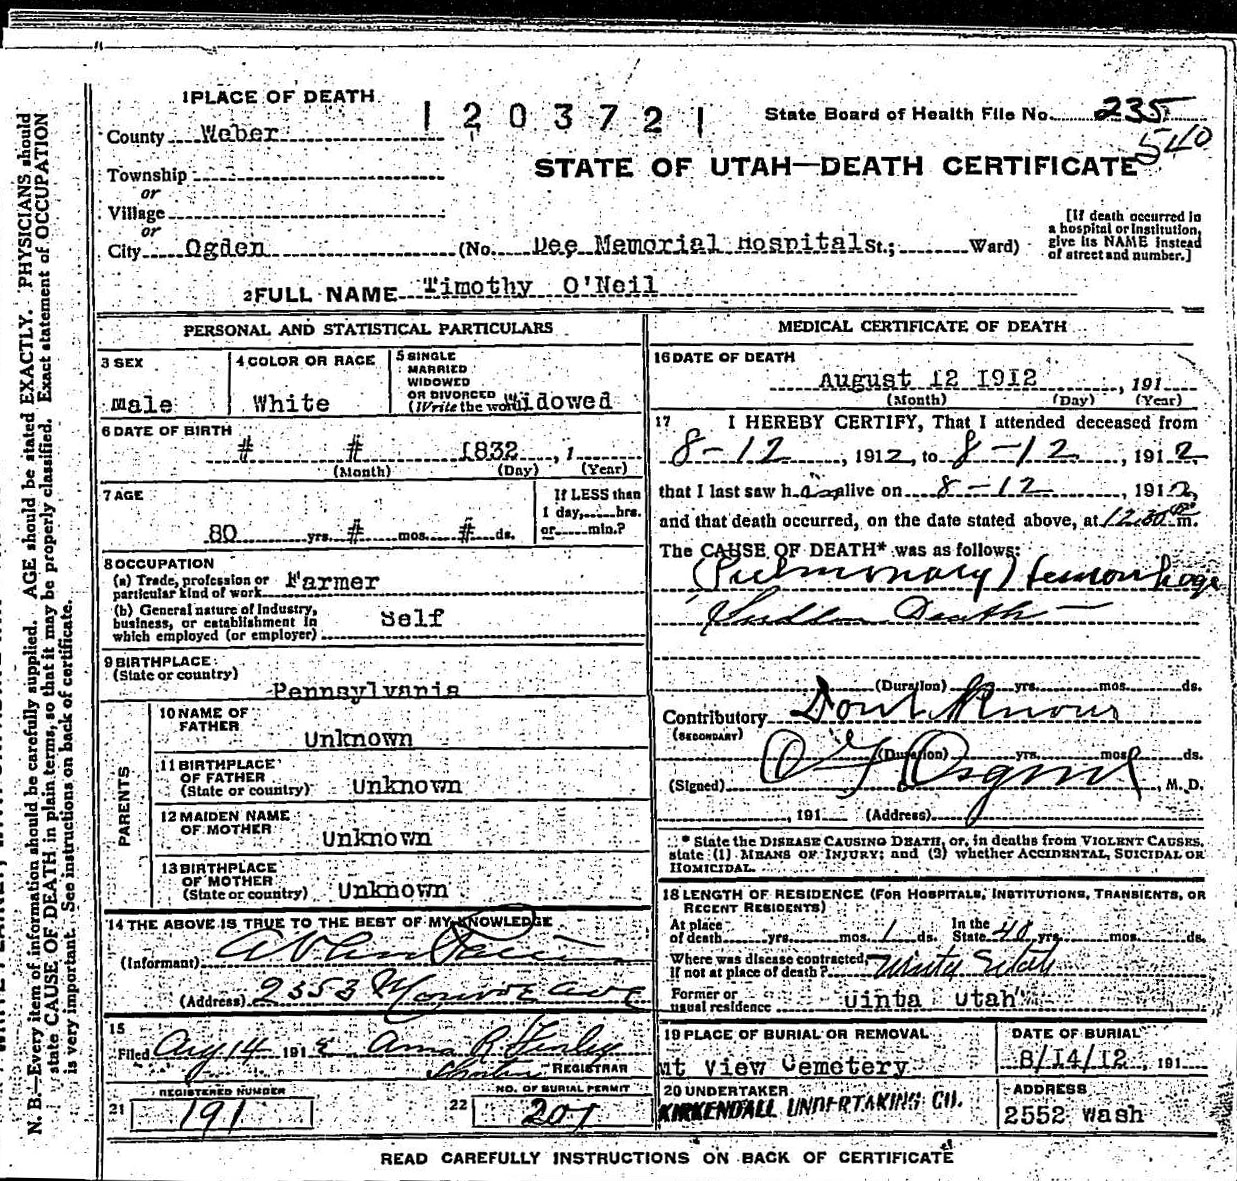 1 PLACE OF DEATH
County Weber
1 2 0 3 7 2 1
State Board of Health File No. 235
540
Township
or
Village
or
City Ogden (No. Dee Memorial Hospital St.; Ward)
STATE OF UTAH—DEATH CERTIFICATE
[If death occurred in
a hospital or institution,
give its NAME instead
of street and number.]
2 FULL NAME Timothy O'Neil
PERSONAL AND STATISTICAL PARTICULARS
3 SEX
Male
4 COLOR OR RACE
White
5 SINGLE
MARRIED
WIDOWED
OR DIVORCED
(Write the word) Widowed
6 DATE OF BIRTH
# # 1832, 1
(Month) (Day) (Year)
7 AGE
80 yrs. # mos. # ds.
If LESS than
1 day, hrs.
or min.?
8 OCCUPATION
(a) Trade, profession or
particular kind of work Farmer
(b) General nature of Industry,
business, or establishment in
which employed (or employer) Self
9 BIRTHPLACE
(State or country)
Pennsylvania
PARENTS
10 NAME OF
FATHER
Unknown
11 BIRTHPLACE
OF FATHER
(State or country) Unknown
12 MAIDEN NAME
OF MOTHER
Unknown
13 BIRTHPLACE
OF MOTHER
(State or country) Unknown
14 THE ABOVE IS TRUE TO THE BEST OF MY KNOWLEDGE
(Informant)
(Address) 2353 Monroe Ave
15
Filed Aug 14 191 2 Anna R Finley
REGISTRAR
REGISTERED NUMBER
21 191
NO. OF BURIAL PERMIT
22 201
MEDICAL CERTIFICATE OF DEATH
16 DATE OF DEATH
August 12 1912, 191
(Month) (Day) (Year)
17 I HEREBY CERTIFY, That I attended deceased from
8-12, 1912, to 8-12, 1912
that I last saw h alive on 8-12, 1912,
and that death occurred, on the date stated above, at 12:30 m.
The CAUSE OF DEATH* was as follows:
(Pulmonary) Hemorrhage
Sudden Death
(Duration) yrs. mos. ds.
Contributory Dont Know
(SECONDARY)
(Duration) yrs. mos. ds.
(Signed) , M. D.
, 191 (Address)
* State the DISEASE CAUSING DEATH, or, in deaths from VIOLENT CAUSES,
state (1) MEANS OF INJURY; and (2) whether ACCIDENTAL, SUICIDAL OR
HOMICIDAL.
18 LENGTH OF RESIDENCE (FOR HOSPITALS, INSTITUTIONS, TRANSIENTS, OR
RECENT RESIDENTS)
At place
of death yrs. mos. 1 ds. In the
State 40 yrs. mos. ds.
Where was disease contracted,
If not at place of death? Utah
Former or
usual residence Uinta Utah
19 PLACE OF BURIAL OR REMOVAL
Mt View Cemetery
DATE OF BURIAL
8/14/12, 191
20 UNDERTAKER
KIRKENDALL UNDERTAKING CO.
ADDRESS
2552 Wash
READ CAREFULLY INSTRUCTIONS ON BACK OF CERTIFICATE
N. B.—Every item of information should be carefully supplied. AGE should be stated EXACTLY. PHYSICIANS should
state CAUSE OF DEATH in plain terms, so that it may be properly classified. Exact statement of OCCUPATION
is very important. See instructions on back of certificate.